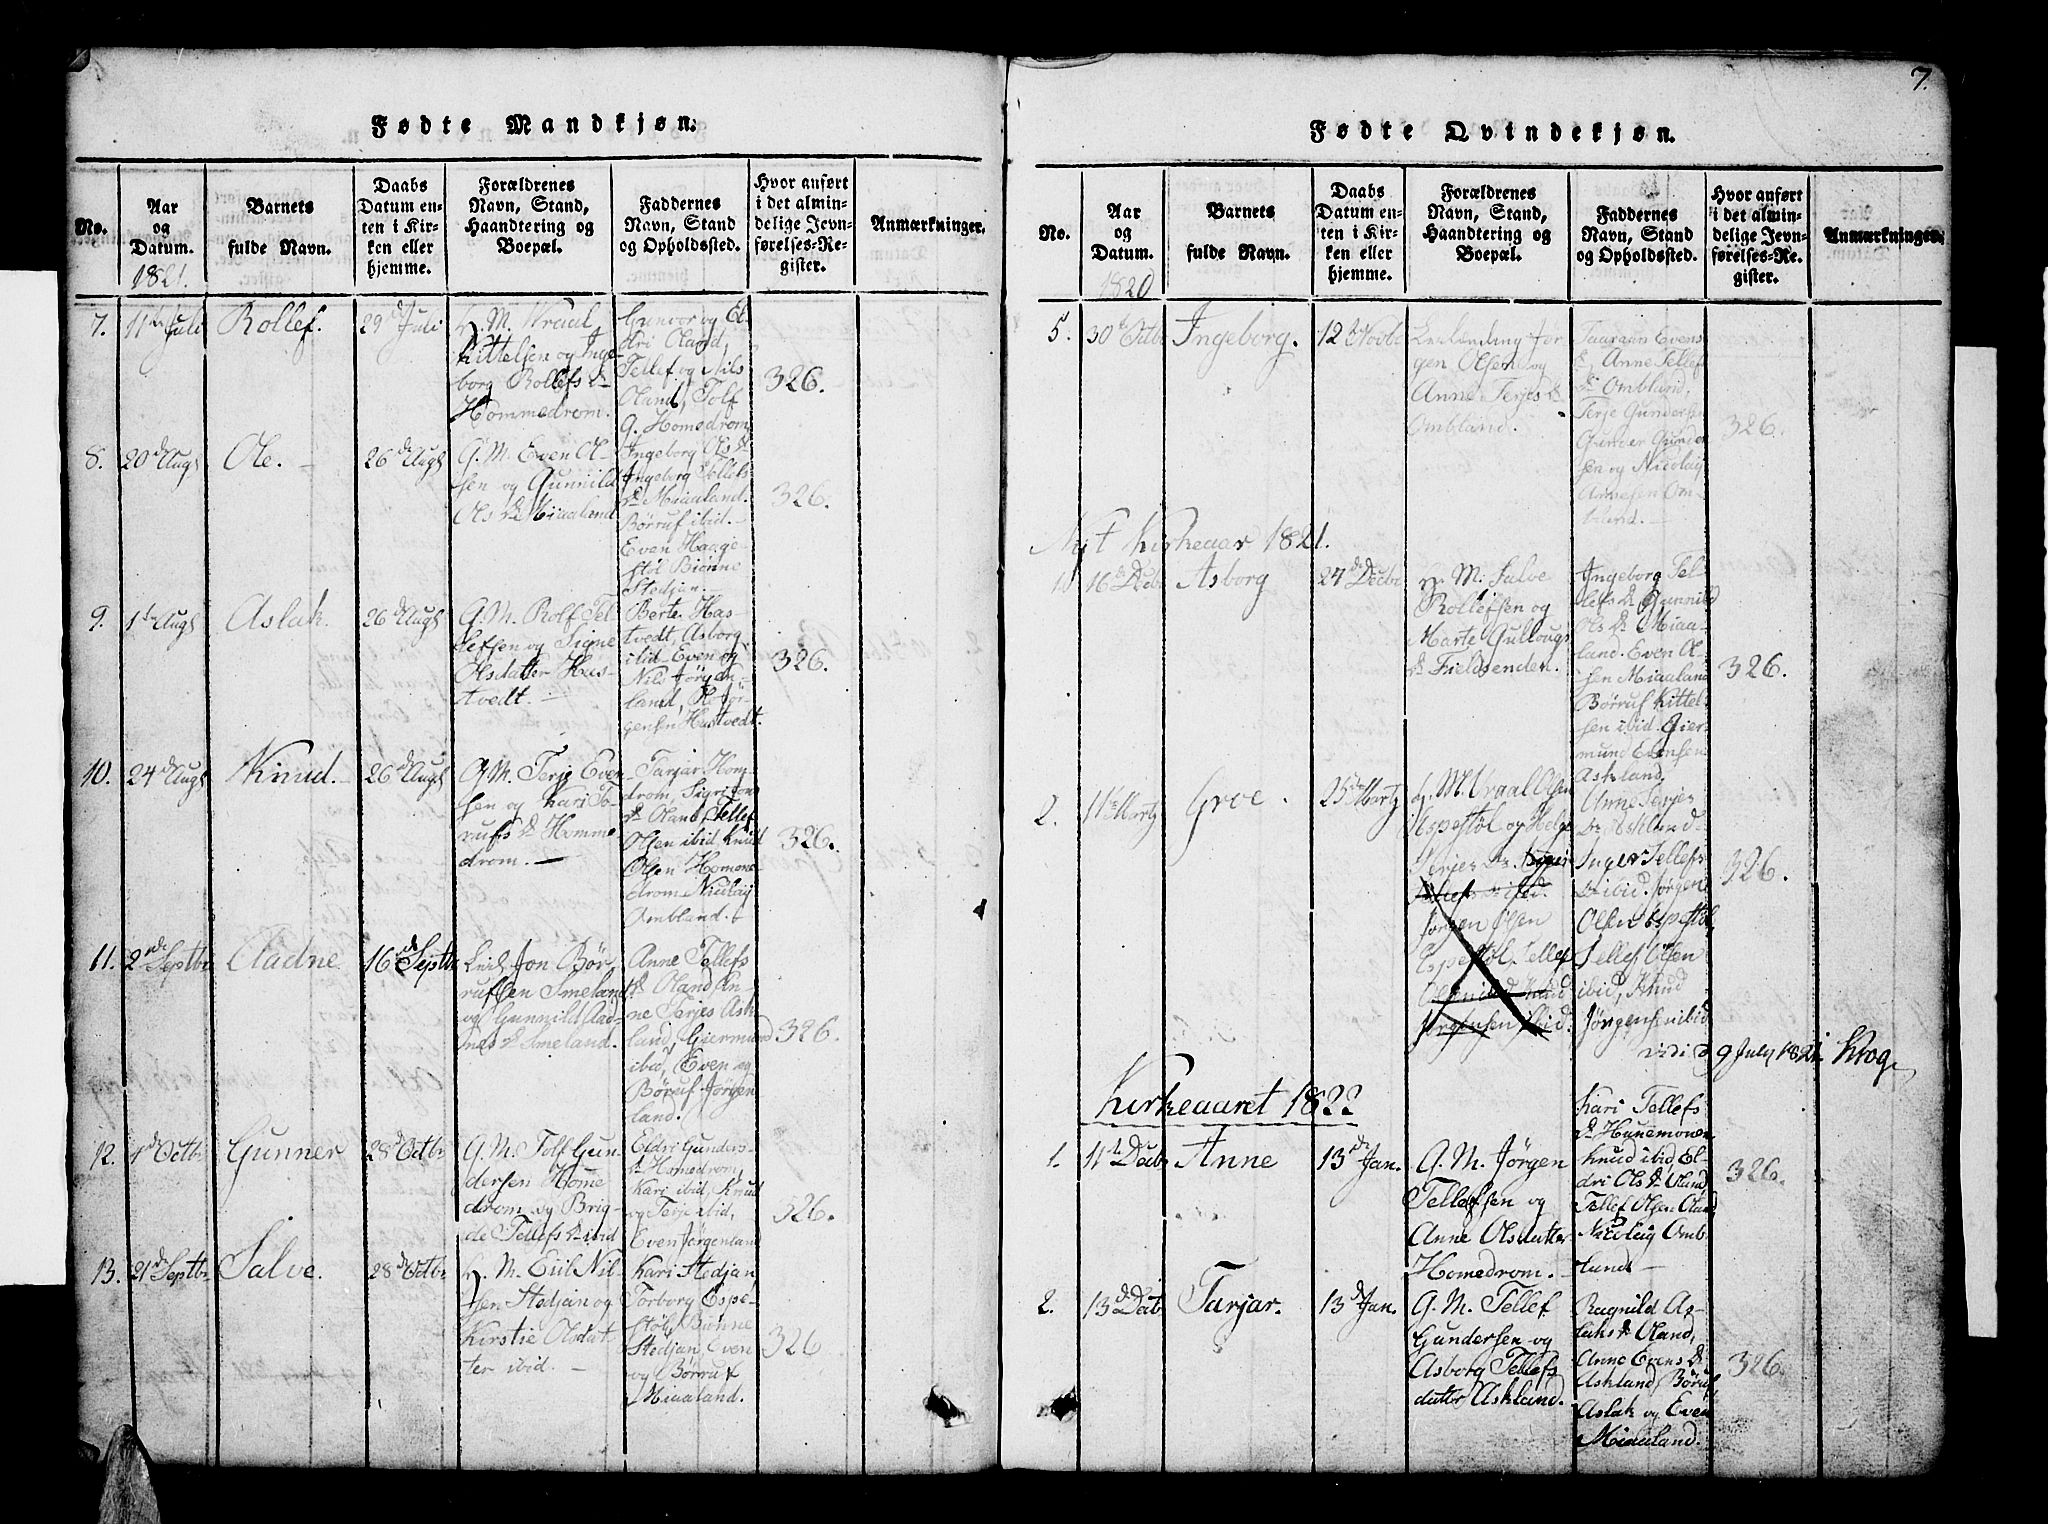 7.
Fødte Mandkjøn.
No.
Aar
og
Datum.
1821.
Barnets
fulde Navn.
Daabs
Datum en-
ten i Kir-
ken eller
hjemme.
Forældrenes
Navn, Stand,
Haandtering og
Boepæl.
Faddernes
Navn, Stand
og Opholdssted.
Hvor anført
i det almin-
delige Jevn-
førelses-Re-
gister.
Anmærkninger.
7.
11te Juli
Rollef.
29d Juli
Kittelsen og Inge-
borg Rollefs D
Hommedrom.
Gunvor og El-
dri Oland,
Tellef og Nils
Oland, Tolf
G. Homedrom
326.
8.
20d Augt
Ole.
26d Augt
G. M. Even Ol-
sen og Gunnild
Ols D Miaaland
Ingeborg Ols D
Ingeborg Tellefs
D Miaaland.
Børruf ibid.
Even Haage-
støl Biønne
Stedjan.
326.
9.
1te Augt
Aslak.
26d Augt
G. M. Rolf Tel-
lefsen og Signe
Olsdatter Hus-
tvedt.
Berte Hus-
tvedt, Asborg
ibid Even og
Nils Jørgen-
land, Ole Jør-
gensen Hustvedt.
326.
10.
24d Augt
Knud.
26d Augt
G. M. Terje Even-
sen og Kari Bo-
rufs D Homme
drom.
Tarjar Hom-
drom, Sigri
D Oland Tellef
Olsen ibid, Knud
Olsen Homme
drom Nicolaij
Ombland.
326.
11.
2den Septbr
Aadne
16d Septbr
Leil Jon Bør-
rufsen Smeland
og Gunnild Aad-
nes D Smeland.
Anne Tellefs
D Oland An-
ne Terjes Ask-
land, Giermund
ibid, Even og
Børuf Jørgen
land.
326.
12.
1d Octbr
Gunner
28d Octbr
G. M. Tolf Gun-
dersen Home
drom og Brig-
de Tellefs D ibid
Eldri Gunders
D Homedrom,
Kari ibid, Knud
og Terje ibid,
Even Jørgenland
326.
13.
21d Septbr
Salve.
28d Octbr
M. Nil-
sen Stedjan og
Kirstie Olsdat-
ter ibid.
Kari Stedjan,
Torborg Espe-
støl, Biønne
Stedjan, Even
og Børruf
Miaaland.
326
Fødte Qvindekjøn.
No.
Aar
og
Datum.
1820
Barnets
fulde Navn.
Daabs
Datum en-
ten i Kir-
ken eller
hjemme.
Forældrenes
Navn, Stand,
Haandtering og
Boepæl.
Faddernes
Navn, Stand
og Opholdssted.
Hvor anført
i det almin-
delige Jevn-
førelses-Re-
gister.
Anmærkninger.
5.
30te Octbr
Ingeborg.
12te Novbr
Jør-
gen Olsen og
Anne Terjes D
Ombland.
Evens
D, Anne Tellef
D Ombland,
Terje Gundersen
Gunder Gunder-
sen og Nicolaij
Arnesen Om-
bland.
326.
Nyt Kirkeaar 1821.
16d Decbr
Asborg
24d Decbr
M. Salve
Rollefsen og
Marte Gullougs
D Fieldsenden.
Ingeborg Tel-
lefs D Gunnild
Ols D Miaa-
land. Even Ol-
sen Miaaland
Børruf Kittel-
sen ibid Gier-
mund Evensen
Askland.
326.
2.
11te Martz
Groe.
25de Martz
M. Vraal Olsen
Espestøl og Helge
Terjes D.
Jørgen Olsen
Espestøl, Tellef
Olsen ibid Knud
Jørgensen ibid.
Anne Terjes
D. Askland
Inger Tellefs
D ibid. Jørgen
Olsen Espestøl,
Tellef Olsen
ibid, Knud
Jørgensen ibid
326.
vidi d 9 July 1821 Krog
Kirkeaaret 1822
1.
11te Decbr
Anne
13de Jan.
G. M. Jørgen
Tellefsen og
Anne Olsdatter
Homedrom.
Kari Tellefs
D Hunemoner
Knud ibid El-
dri Ols D Oland
Tellef Olsen Oland,
Nicolaij Omb-
land
326.
2.
13de Decbr
Tarjar.
13de Jan.
G. M. Tellef
Gundersen og
Asborg Tellefs
datter Askland.
Ragnild As-
laks D Oland,
Anne Evens D
Askland, Børuf
Aslak og Even
Miaaland.
326.